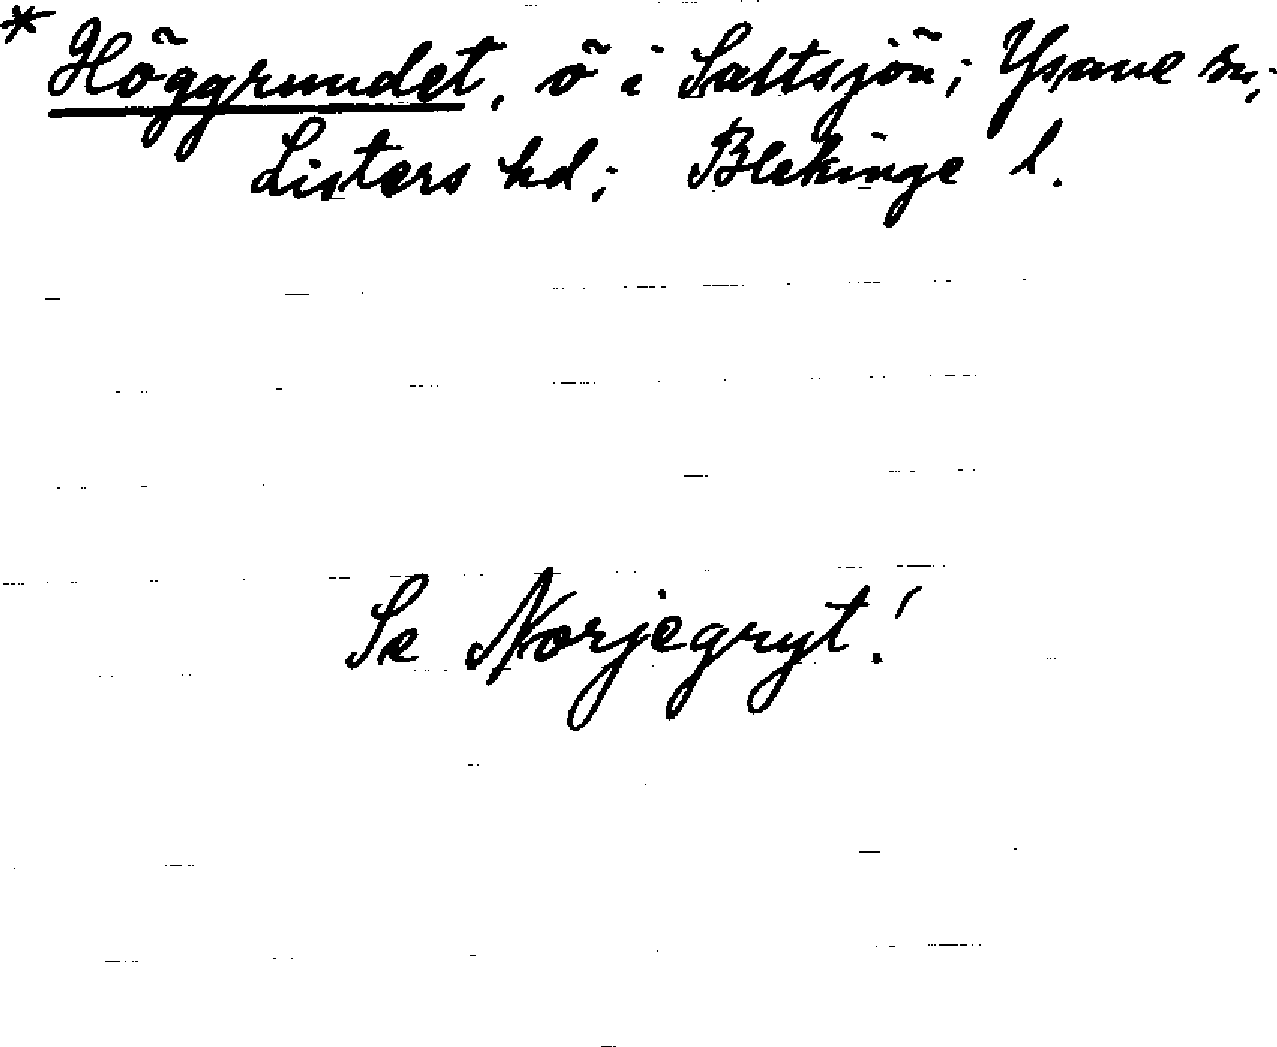 * Höggrundet, ö i Saltsjön; Ysane sn;
Listers hd; Blekinge l.
Se Norjegryt!